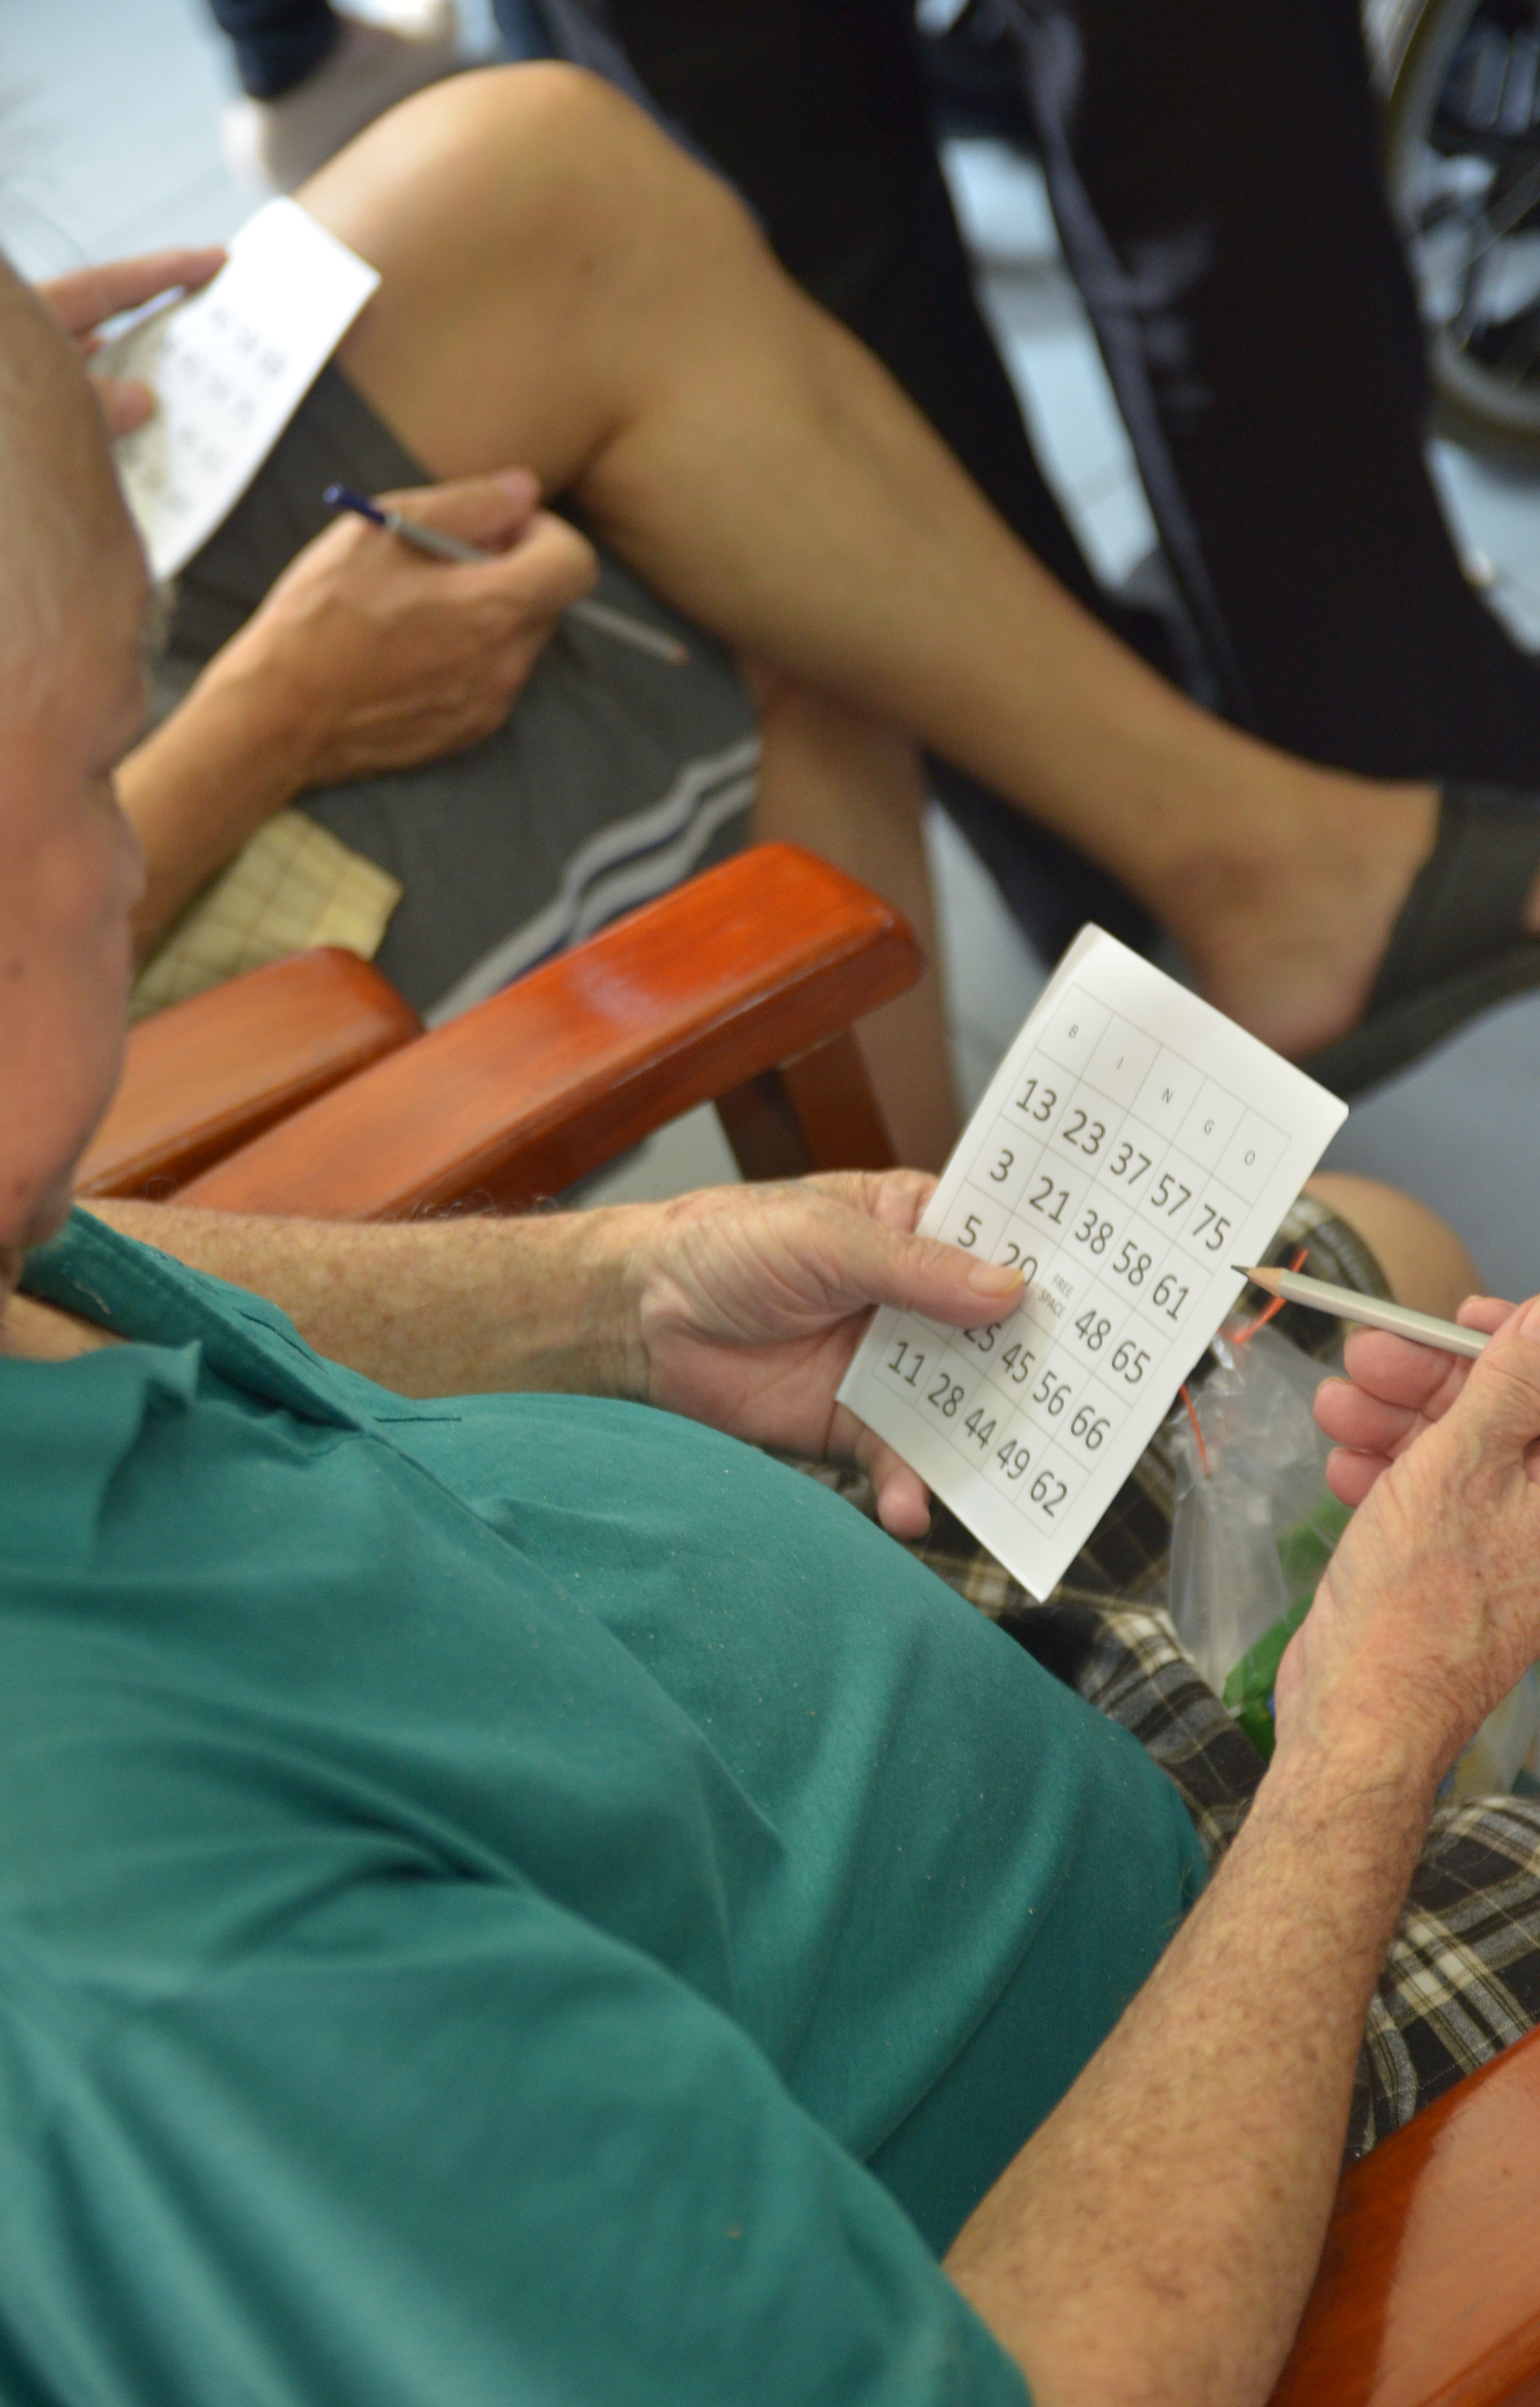 B I N G O
13 23 37 57 75
3 21 38 58 61
5 20 FREE SPACE 48 65
25 45 56 66
11 28 44 49 62